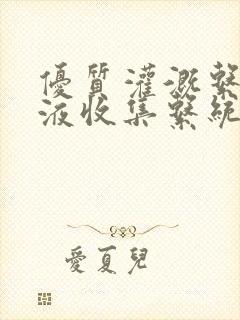 優質灌溉繫
液收集繫統
愛夏兒